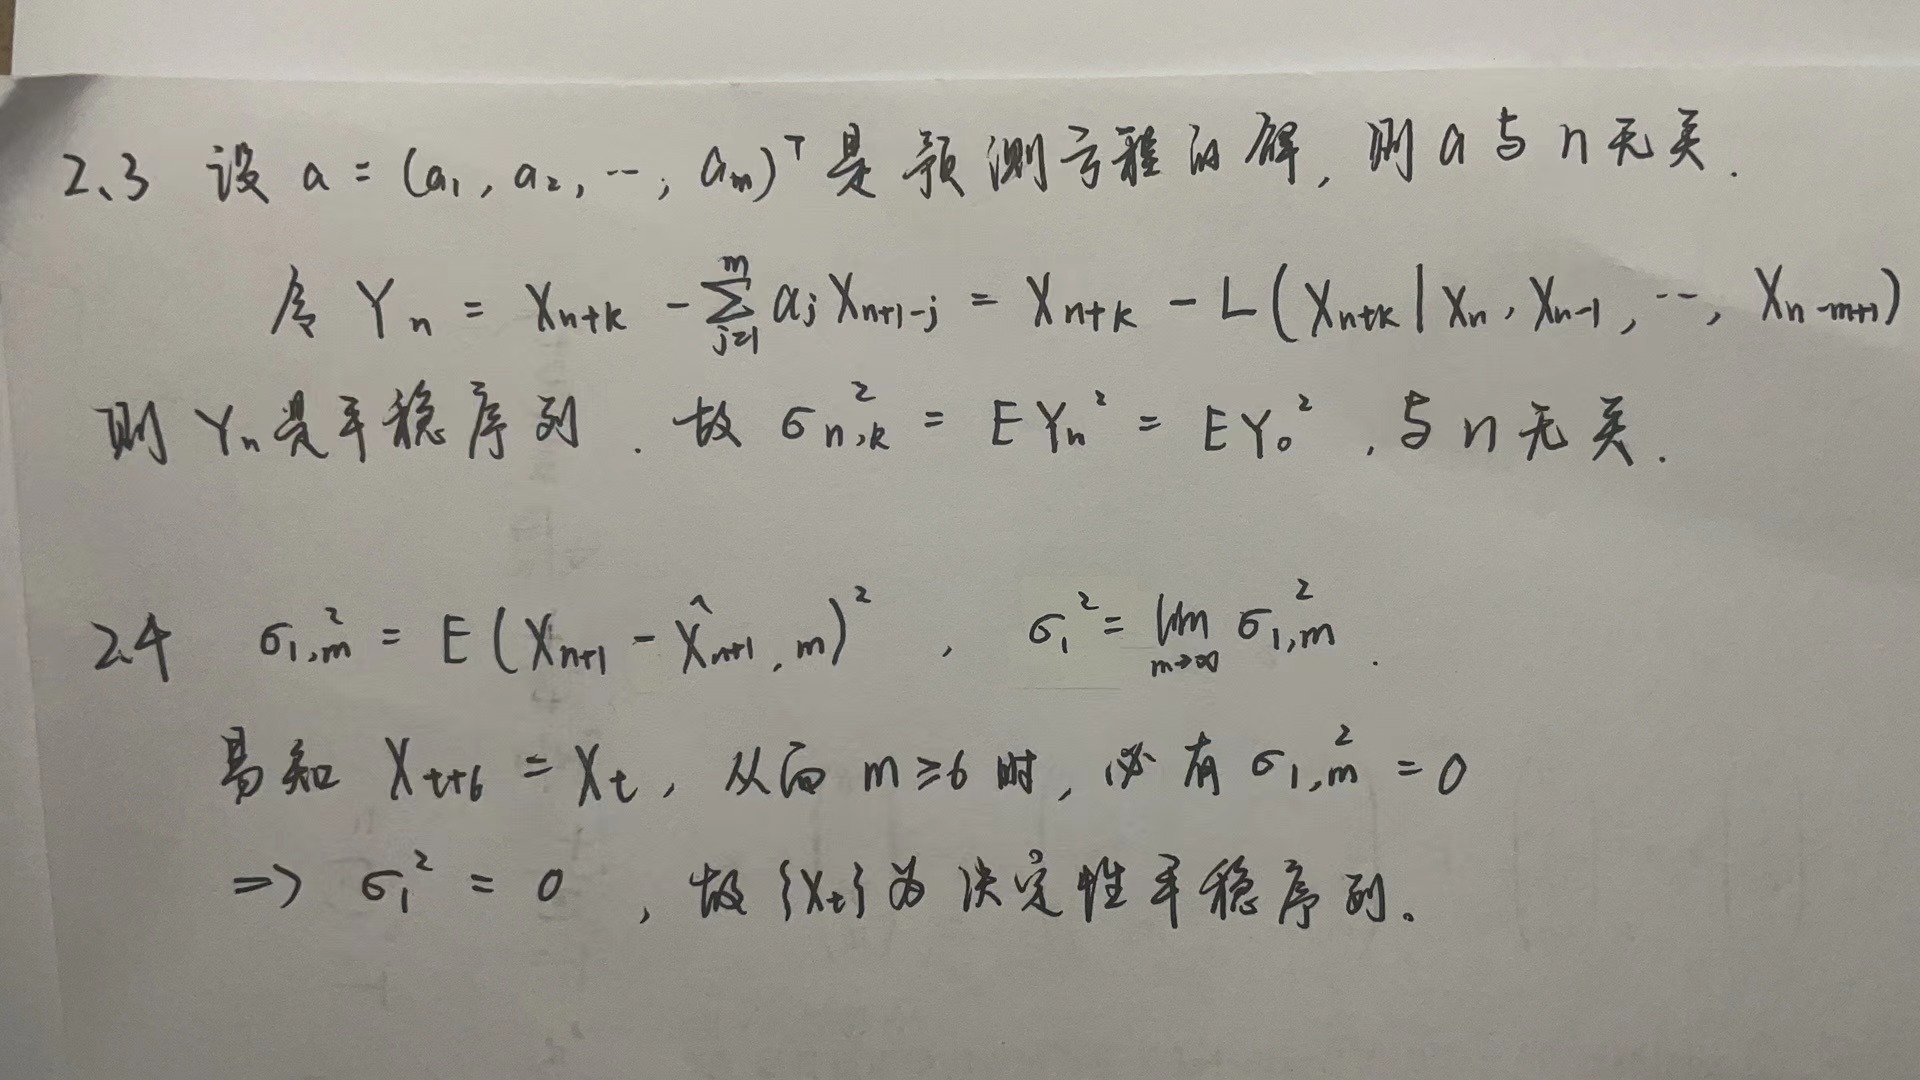 2.3 设 a = (a₁, a₂, ⋯, aₘ)ᵀ 是预测方程的解, 则 a 与 n 无关.
令 Yₙ = Xₙ₊ₖ - ∑_{j=1}^{m} aⱼ Xₙ₊₁₋ⱼ = Xₙ₊ₖ - L(Xₙ₊ₖ | Xₙ, Xₙ₋₁, ⋯, Xₙ₋ₘ₊₁)
则 Yₙ 是平稳序列. 故 σ²_{n,k} = EYₙ² = EY₀², 与 n 无关.
2.4 σ²_{1,m} = E(Xₙ₊₁ - X̂_{n+1,m})², σ₁² = lim_{m→∞} σ²_{1,m}.
易知 X_{t+6} = X_t, 从而 m≥6 时, 必有 σ²_{1,m} = 0
⇒ σ₁² = 0, 故 {X_t} 为决定性平稳序列。